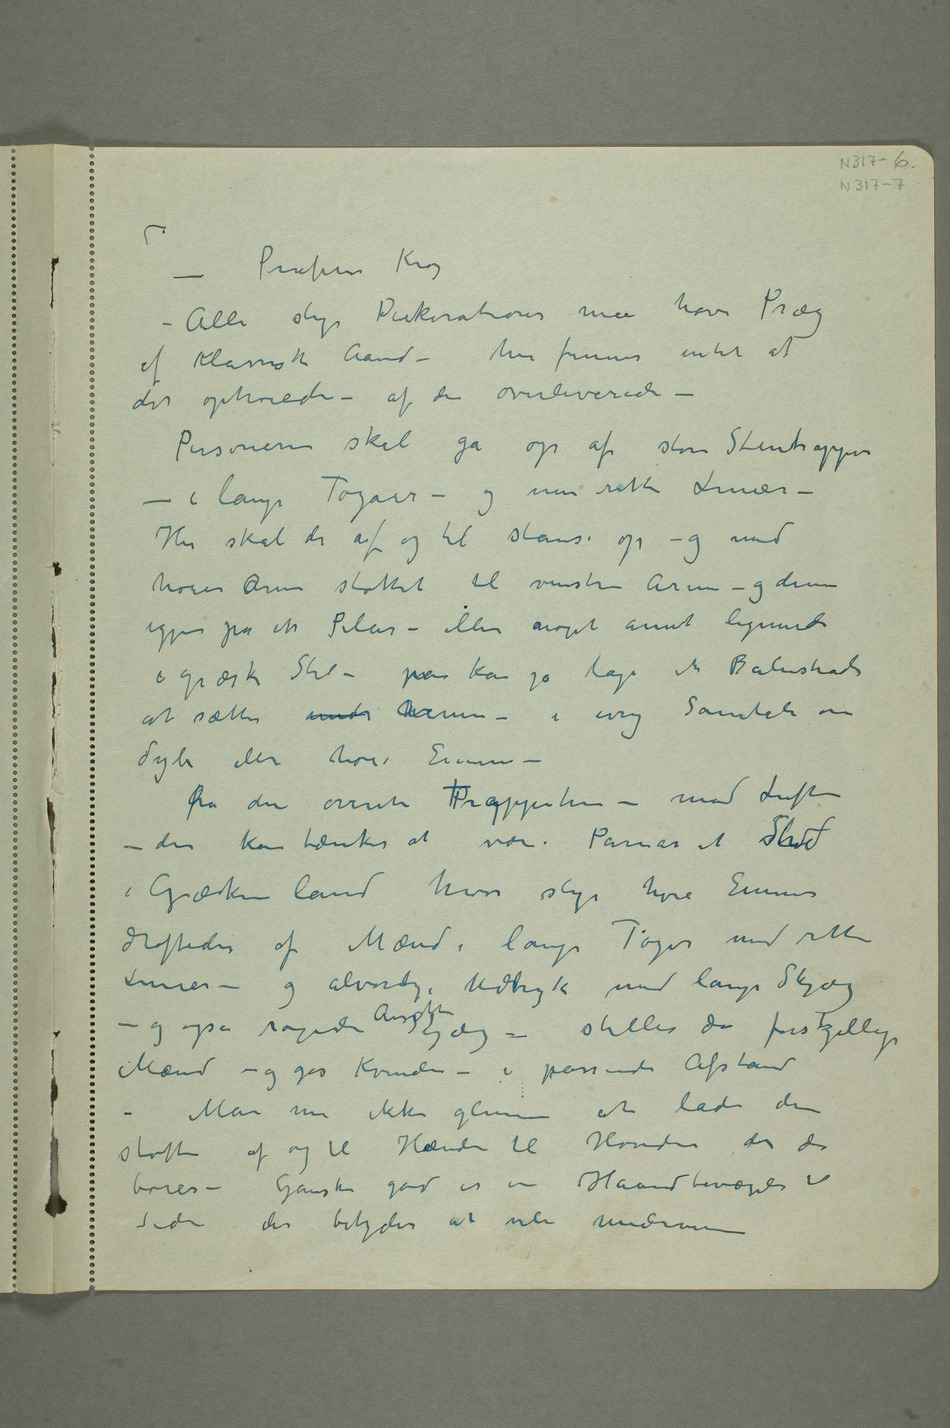 N317-6.
N317-7
— Professor Krog
– Alle slige Dekorationer maa have Præg
af Klassisk Aand – her finnes intet af
det ophøiede – af de overleverede –
Personerne skal gå op af store Stentrapper
— i lange Togaer – og men rette Linier –
Her skal de af og til stanse op – og med
høire Arm støttet til venstre Arm – og denne
igjen på et Pilar – eller noget annet lignende
i græsk Stil – man kan jo lage et Balustrade
at sætte under henne – i ivrig Samtale om
dybe eller høie Emner –
Fra den øverste Trappetrin – mod Luften
– der kan tænkes at være Parnas et Sted
i Grækenland hvor slige høie Emner
drøftedes af Mænd i lange Togaer med rette
Linier – og alvorlig Udtryk med lange Skjæg
– og også ragede Ansigter Skjæg – stilles da forskjellige
Mænd – og gjerne Kvinder – i passende Afstand
– Man må ikke glemme at lade dem
støtte af og til Hænder til Hovedet da de
bøies – Ganske god er en Haandbevægelse til
Siden der betyder at ville